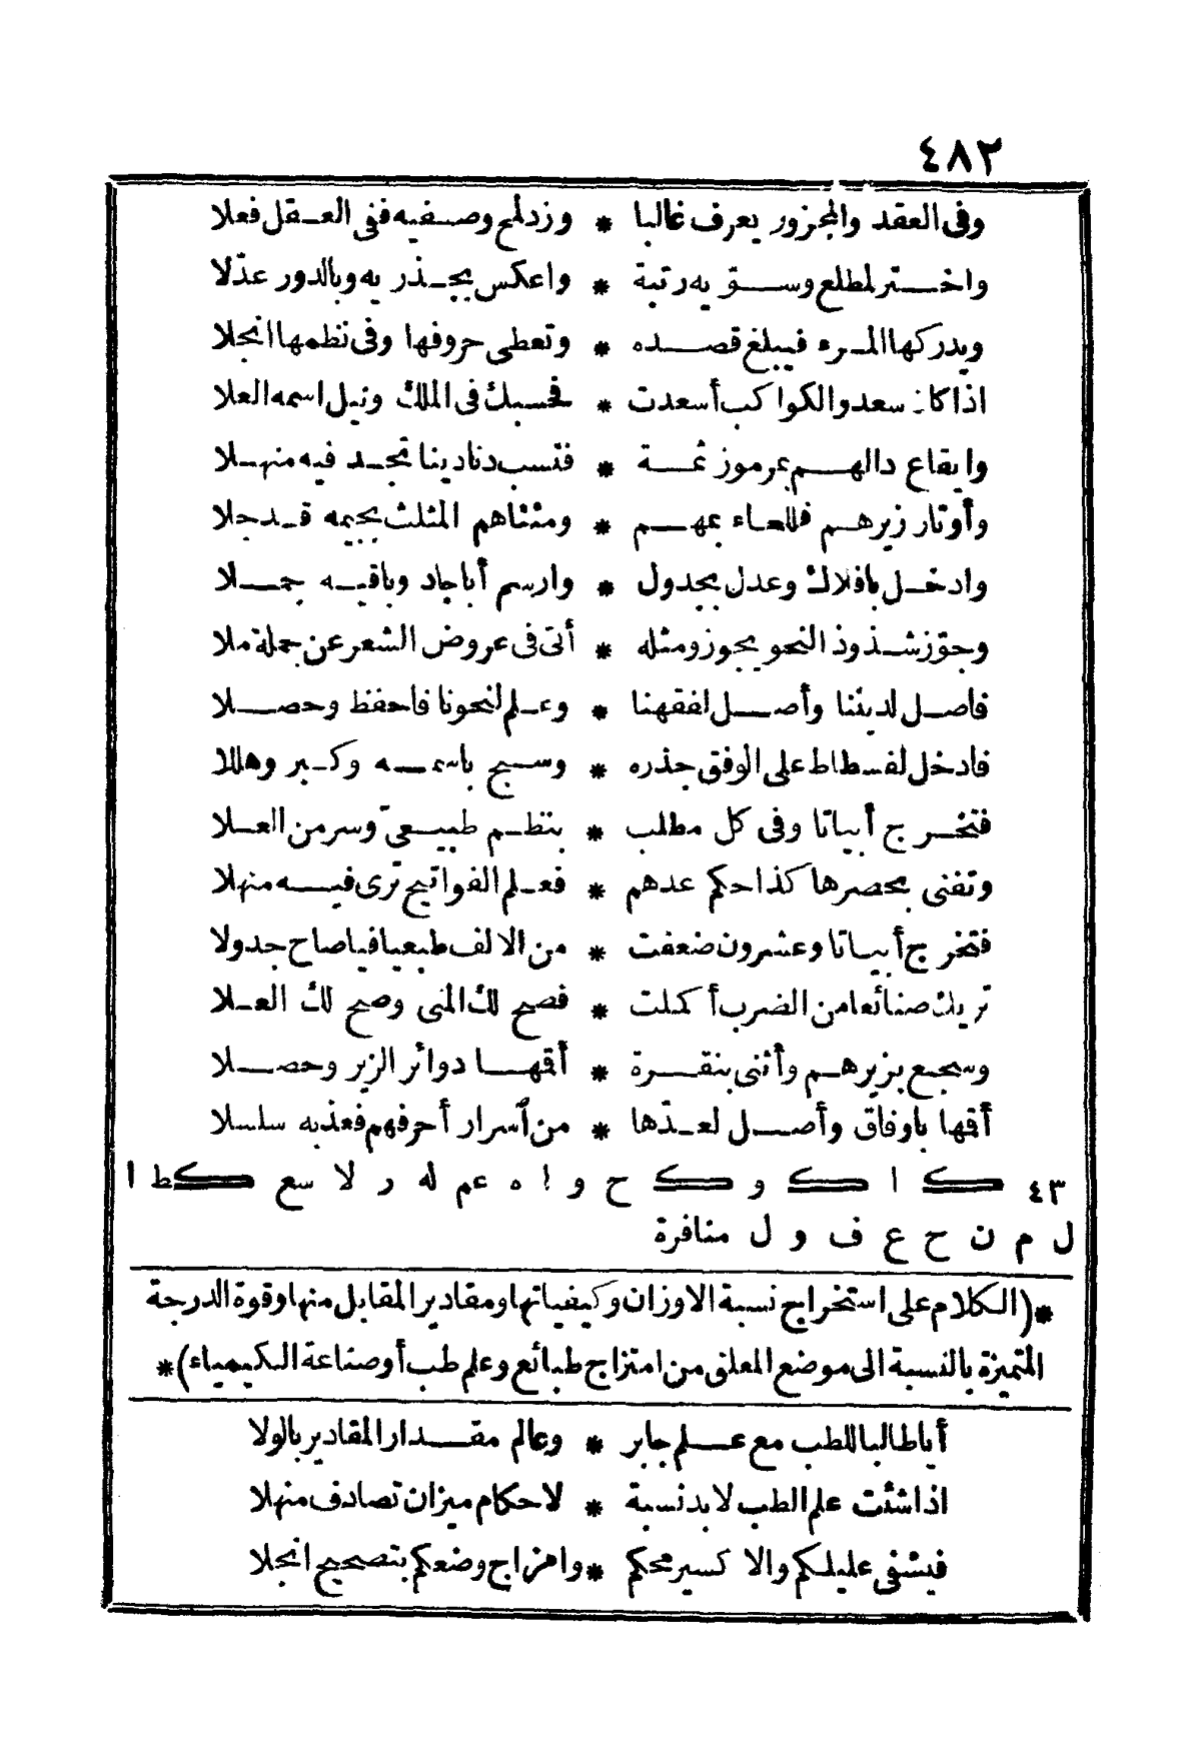 ٤٨٢
وفى العقد والمجزور يعرف غالبا * وزد لمح وصفيه ففى العقل فعلا
واختر لمطلع وسو يه رتبة * واعكس بجذريه وبالدور عدّلا
ويدركها المرء فيبلغ قصده * وتعطى حروفها وفى نظمها انجلا
اذا كان سعد والكواكب أسعدت * فحسبك فى الملك ونيل اسمه العلا
وايقاع دالهم بمرموز ثمة * فتسب دنادينا تجد فيه منهلا
وأوتار زيرهم فللحاء بمهم * ومثناهم المثلث بجيمه قد جلا
وادخل بافلاك وعدل بجدول * وارسم أباجاد وباقيه جملا
وجوّز شذوذ النحو يجوز ومثله * أتى فى عروض الشعر عن جملة ملا
فاصل لديننا وأصل لفقهنا * وعلم لنحونا فاحفظ وحصلا
فادخل لفسطاط على الوفق جذره * وسبح باسمه وكبر وهللا
فتخرج أبياتا وفى كل مطلب * بنظم طبيعىّ وسر من العلا
وتفنى بحصرها كذا حكم عدهم * فعلم الفواتيح ترى فيه منهلا
فتخرج أبياتا وعشرون ضعفت * من الالف طبعيا فياصاح جدولا
تريك صنائعا من الضرب أكملت * فصح لك المنى وصح لك العلا
وسجع بزيرهم وأثنى بنقرة * أقمها دوائر الزير وحصلا
أقمها باوفاق وأصل لعدّها * من أسرار أحرفهم فعذبه سلسلا
٤٣ ك ا ك و ك ح و ا ه عم له ر لا سع كط ا
ل م ن ح ع ف و ل منافرة
*(الكلام على استخراج نسبة الاوزان وكيفياتها ومقادير المقابل منها وقوة الدرجة
المتميزة بالنسبة الى موضع المعلق من امتزاج طبائع وعلم طب أو صناعة الكيمياء)*
أيا طالبا للطب مع علم جابر * وعالم مقدار المقادير بالولا
اذا شئت علم الطب لا بد نسبة * لاحكام ميزان تصادف منهلا
فيشفى عليلكم والا كسير محكم * وامزاج وضعكم بتصحيح انجلا